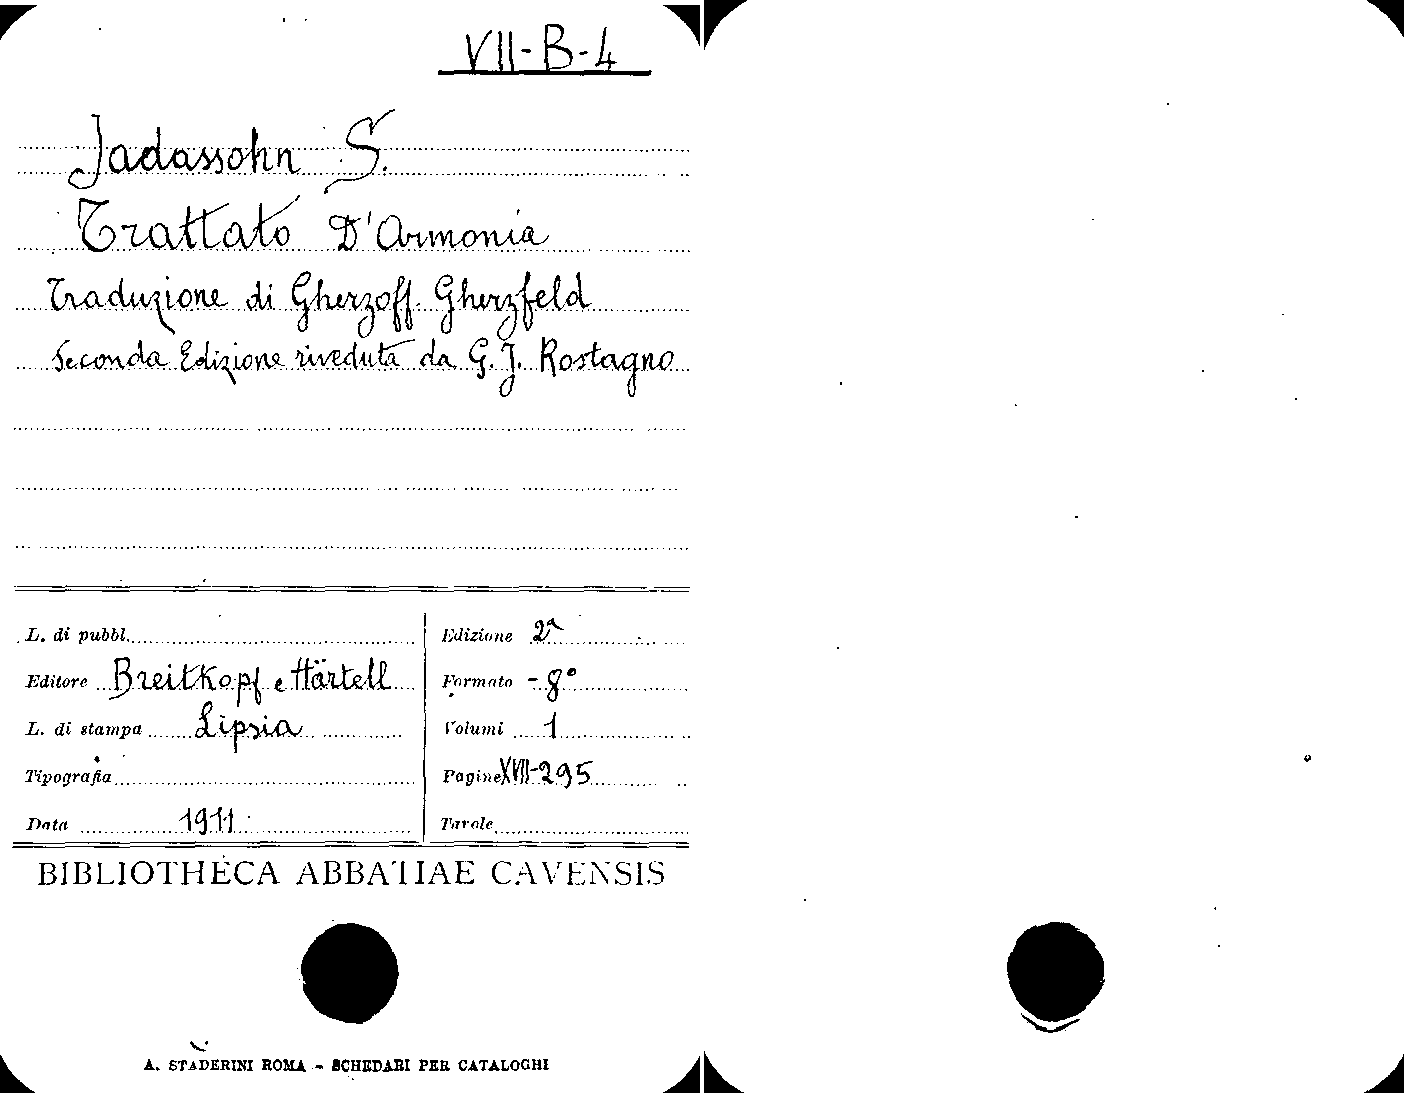 VII-B-4
Jadassohn S.
Trattato D'Armonia
Traduzione di Gherzoff. Gherzfeld
Seconda Edizione riveduta da G. J. Rostagno
L. di pubbl.
Editore Breitkopf e Härtell
L. di stampa Lipsia
Tipografia
Data 1911
Edizione 2ª
Formato - 8°
Volumi 1
Pagine XVII-295
Tavole
BIBLIOTHECA ABBATIAE CAVENSIS
A. STADERINI ROMA - SCHEDARI PER CATALOGHI